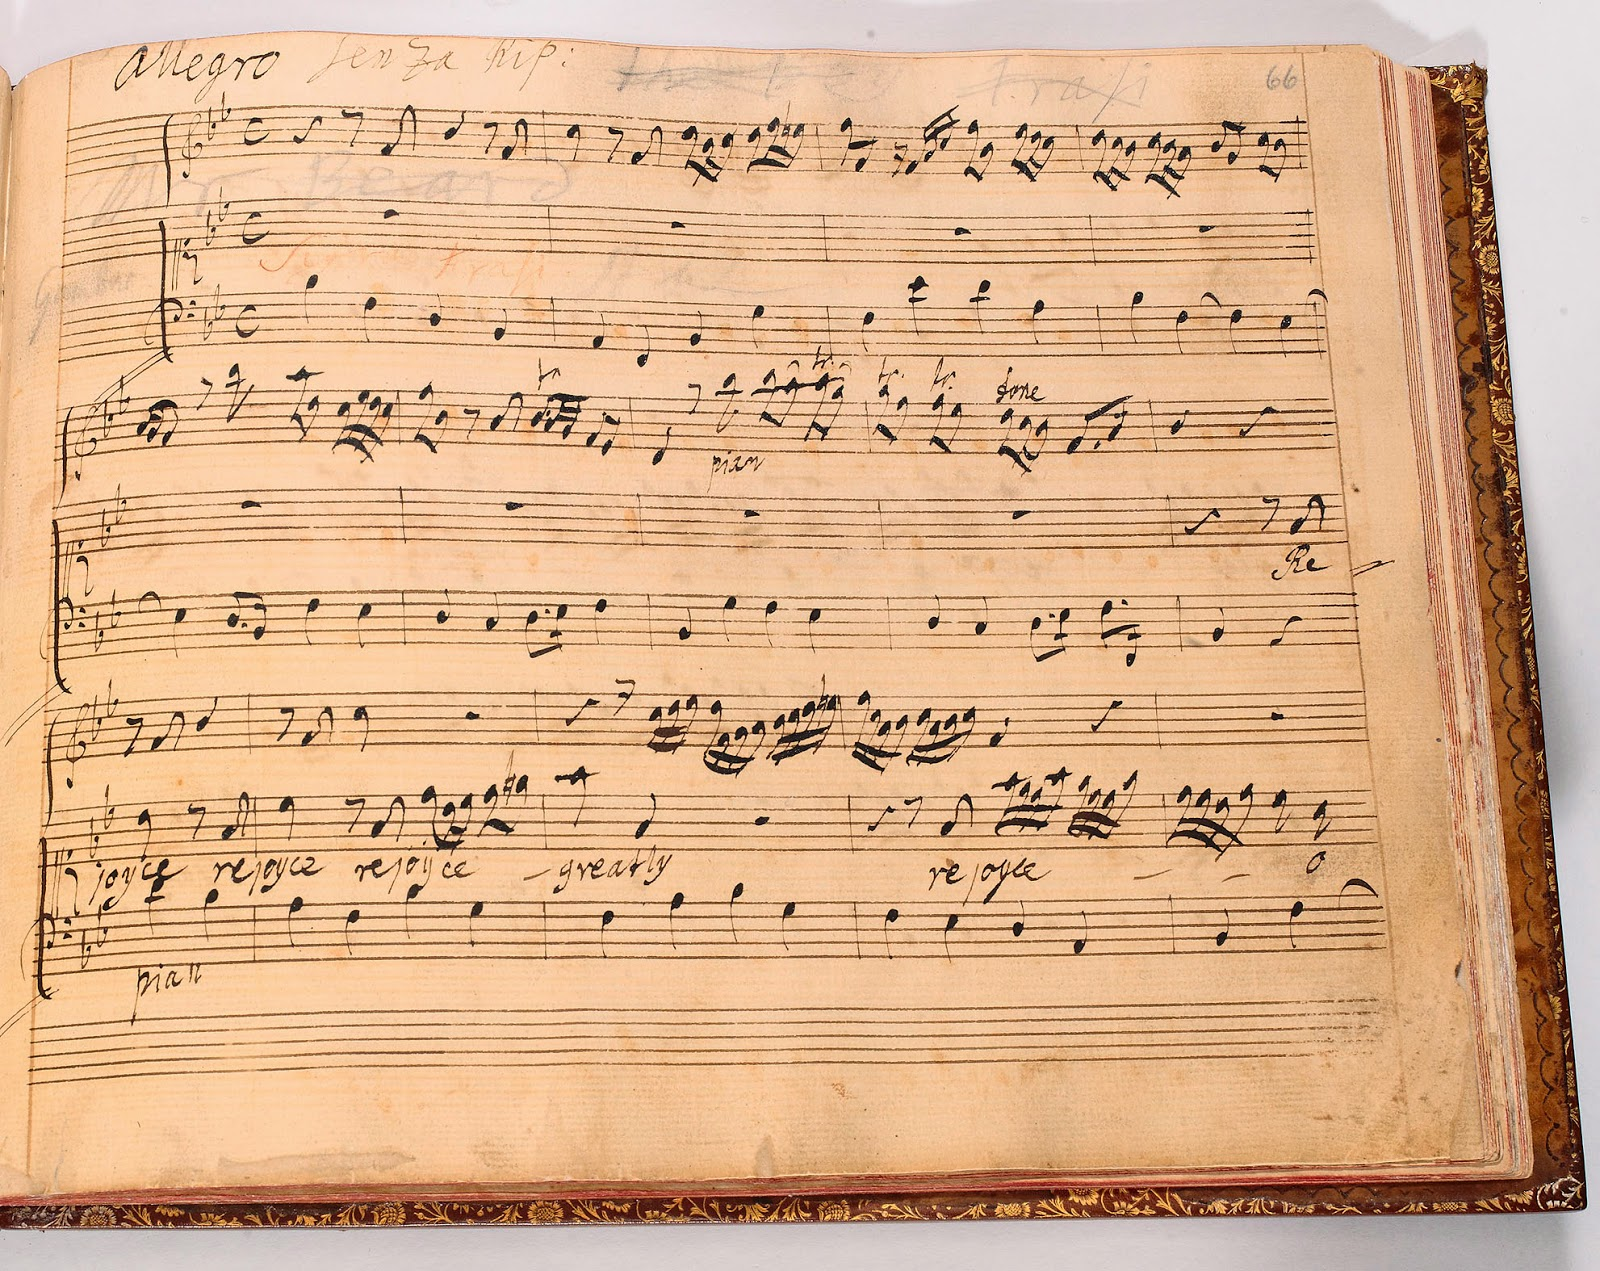 Allegro senza Rip:
Frasi
66
Mr Beard
Frasi
tr tr. tr. tr.
pian
Re -
joyce rejoyce rejoyce - greatly rejoyce - - o
pian